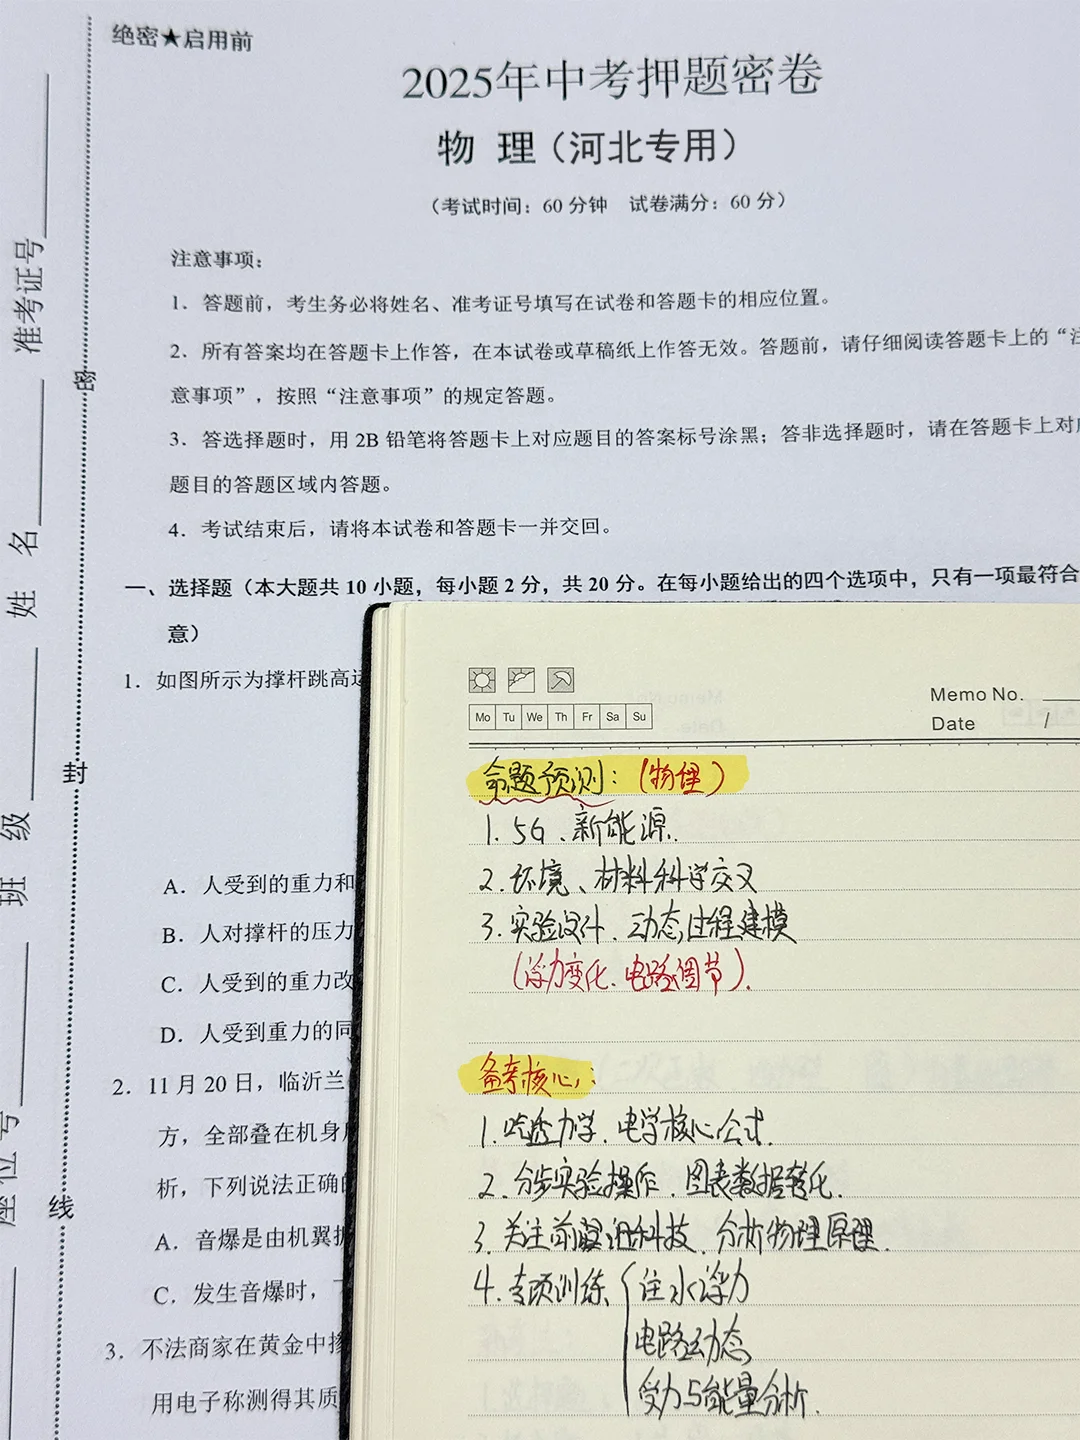 绝密★启用前
2025年中考押题密卷
物 理（河北专用）
（考试时间：60 分钟 试卷满分：60 分）
注意事项：
1．答题前，考生务必将姓名、准考证号填写在试卷和答题卡的相应位置。
2．所有答案均在答题卡上作答，在本试卷或草稿纸上作答无效。答题前，请仔细阅读答题卡上的“注
意事项”，按照“注意事项”的规定答题。
3．答选择题时，用 2B 铅笔将答题卡上对应题目的答案标号涂黑；答非选择题时，请在答题卡上对应
题目的答题区域内答题。
4．考试结束后，请将本试卷和答题卡一并交回。
一、选择题（本大题共 10 小题，每小题 2 分，共 20 分。在每小题给出的四个选项中，只有一项最符合
意）
1．如图所示为撑杆跳高运
A．人受到的重力和
B．人对撑杆的压力
C．人受到的重力改
D．人受到重力的同
2．11 月 20 日，临沂兰
方，全部叠在机身
析，下列说法正确的
A．音爆是由机翼振
C．发生音爆时，
3．不法商家在黄金中掺
用电子称测得其质
准考证号
姓 名
班 级
座位号
密
封
线
Mo Tu We Th Fr Sa Su
Memo No.
Date /
命题预测：（物理）
1. 5G、新能源.
2. 环境、材料科学交叉
3. 实验设计、动态过程建模
（浮力变化、电路调节）.
备考核心：
1. 吃透力学、电学核心公式.
2. 分步实验操作、图表数据转化.
3. 关注前沿科技、分析物理原理.
4. 专项训练 { 注水浮力
电路动态
受力与能量分析.